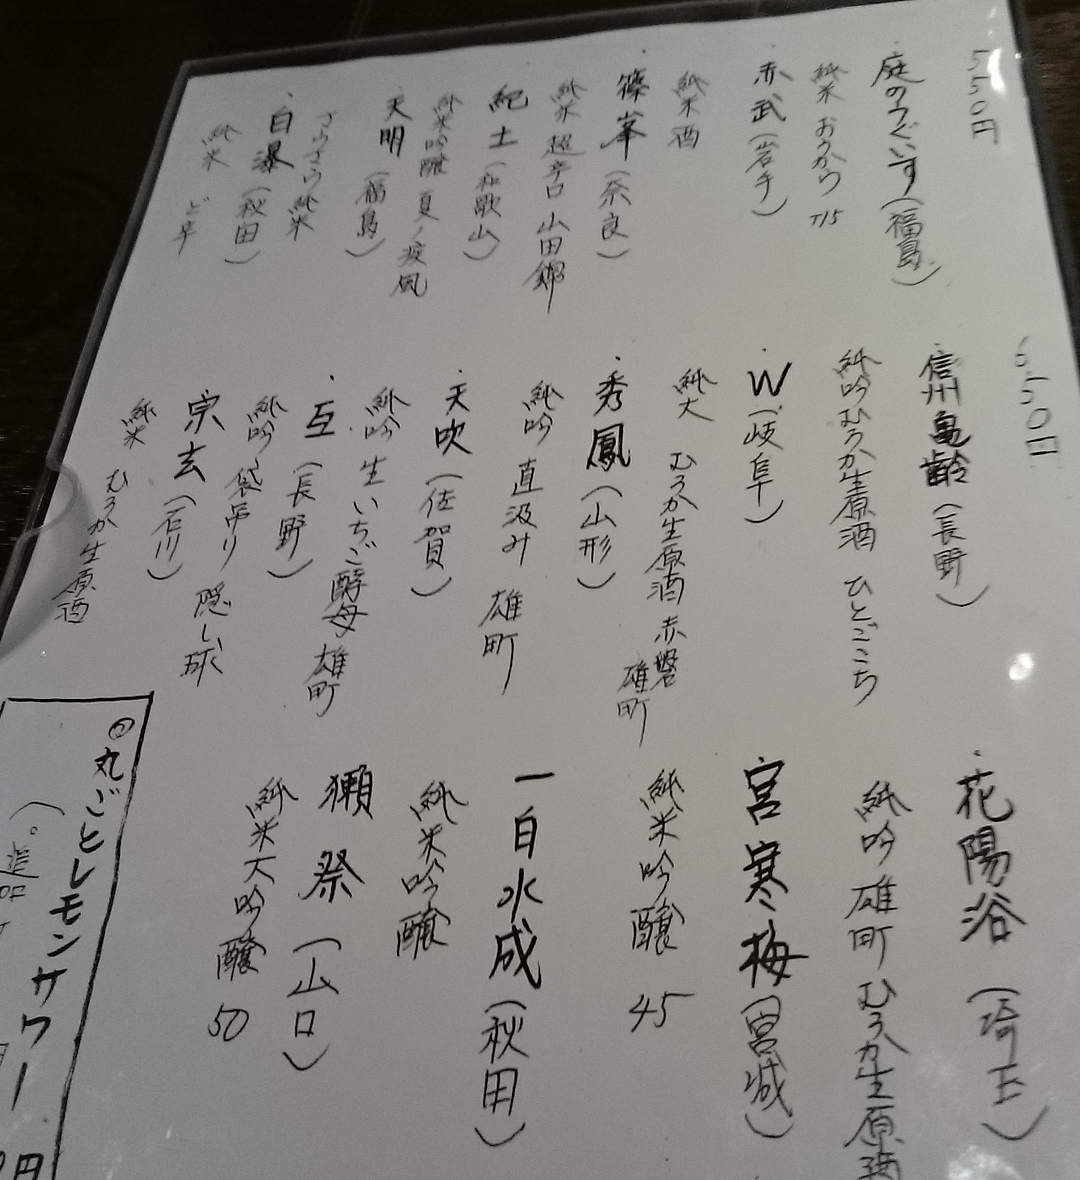 550円
庭のうぐいす(福島)
純米 おうから
赤武(岩手)
純米酒
篠峯(奈良)
純米 超辛口 山田錦
紀土(和歌山)
純米吟醸 夏ノ疾風
天明(福島)
さらさら純米
白瀑(秋田)
純米 ど辛
650円
信州亀齢(長野)
純吟 むろか生原酒 ひとごこち
W(岐阜)
純大 むろか生原酒 赤磐雄町
秀鳳(山形)
純吟 直汲み 雄町
天吹(佐賀)
純吟 生 いちご酵母 雄町
互(長野)
純吟 袋吊り 隠し球
宗玄(石川)
純米 むろか生原酒
花陽浴(埼玉)
純吟 雄町 むろか生原酒
宮寒梅(宮城)
純米吟醸 45
一白水成(秋田)
純米吟醸
獺祭(山口)
純米大吟醸 50
丸ごとレモンサワー
円